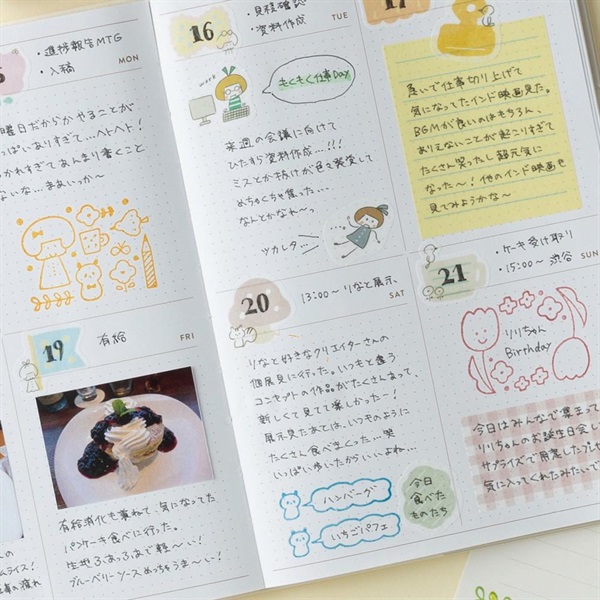 ・進捗報告MTG
・入稿
MON
曜日だからか やることが
っぱいありすぎて...ヘトヘト!
かれすぎてあんまり書くこと
ないな...まあいっか〜
16
・見積確認
・資料作成
TUE
work
もくもく仕事Day
来週の会議に向けて
ひたすら資料作成...!!!
ミスとか抜けが色々発覚して
めちゃくちゃ焦った...
なんとかなれ〜っ
ツカレタ...
17
急いで仕事切り上げて
気になってたインド映画見た。
BGMが良いのはもちろん、
ありえないことが起こりすぎて
たくさん笑ったし超元気に
なった〜!他のインド映画も
見てみようかな〜
19
有給
FRI
有給消化も兼ねて、気になってた
パンケーキ食べに行った。
生地ふわっふわで軽〜い!
ブルーベリーソースめっちゃうま〜い!
20
13:00〜 りなと展示、
SAT
りなと好きなクリエイターさんの
個展見に行った。いつもと違う
コンセプトの作品がたくさんあって、
新しくて見てて楽しかった〜!
展示見たあとは、いつものように
たくさん食べまくった...笑
いっぱい歩いたからいいよね...
ハンバーグ
いちごパフェ
今日
食べた
ものたち
21
・ケーキ受け取り
・15:00〜 渋谷
SUN
りりちゃん
Birthday
今日はみんなで集まって
りりちゃんのお誕生日会し
サプライズで用意したプレ
気に入ってくれたみたいで